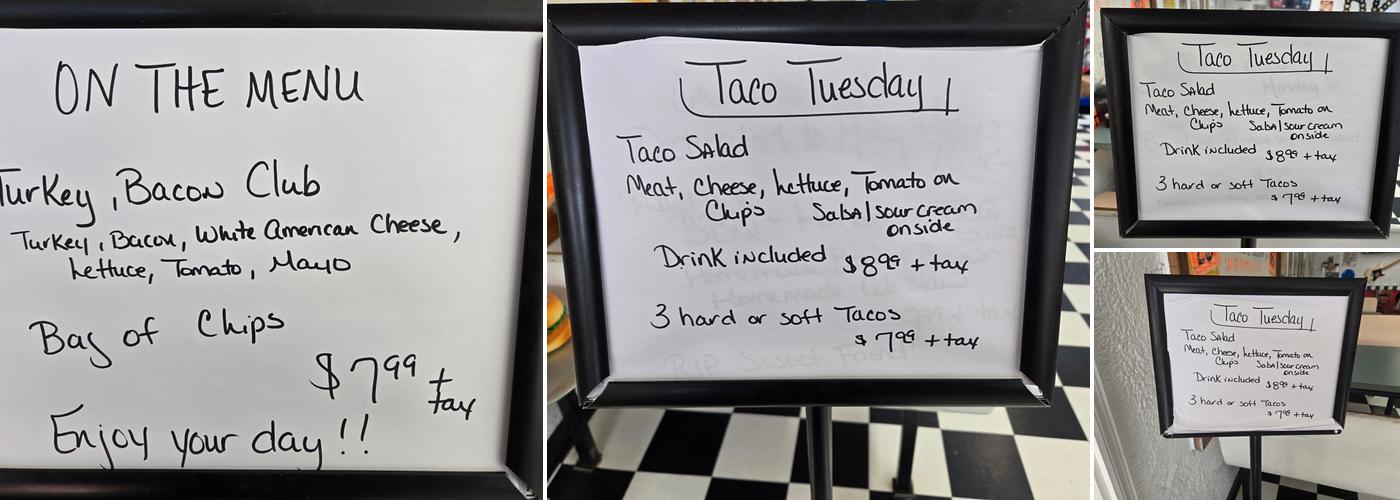 ON THE MENU
Turkey, Bacon Club
Turkey, Bacon, White American Cheese,
Lettuce, Tomato, Mayo
Bag of Chips
$7.99 + tax
Enjoy your day!!
Taco Tuesday
Taco Salad
Meat, Cheese, Lettuce, Tomato on
Chips Salsa/sour cream
on side
Drink included $8.99 + tax
3 hard or soft Tacos
$7.99 + tax
RIP Sweet Friend!
Taco Tuesday
Taco Salad
Meat, Cheese, Lettuce, Tomato on
Chips Salsa/sour cream
on side
Drink included $8.99 + tax
3 hard or soft Tacos
$7.99 + tax
Taco Tuesday
Taco Salad
Meat, Cheese, Lettuce, Tomato on
Chips Salsa/sour cream
on side
Drink included $8.99 + tax
3 hard or soft Tacos
$7.99 + tax